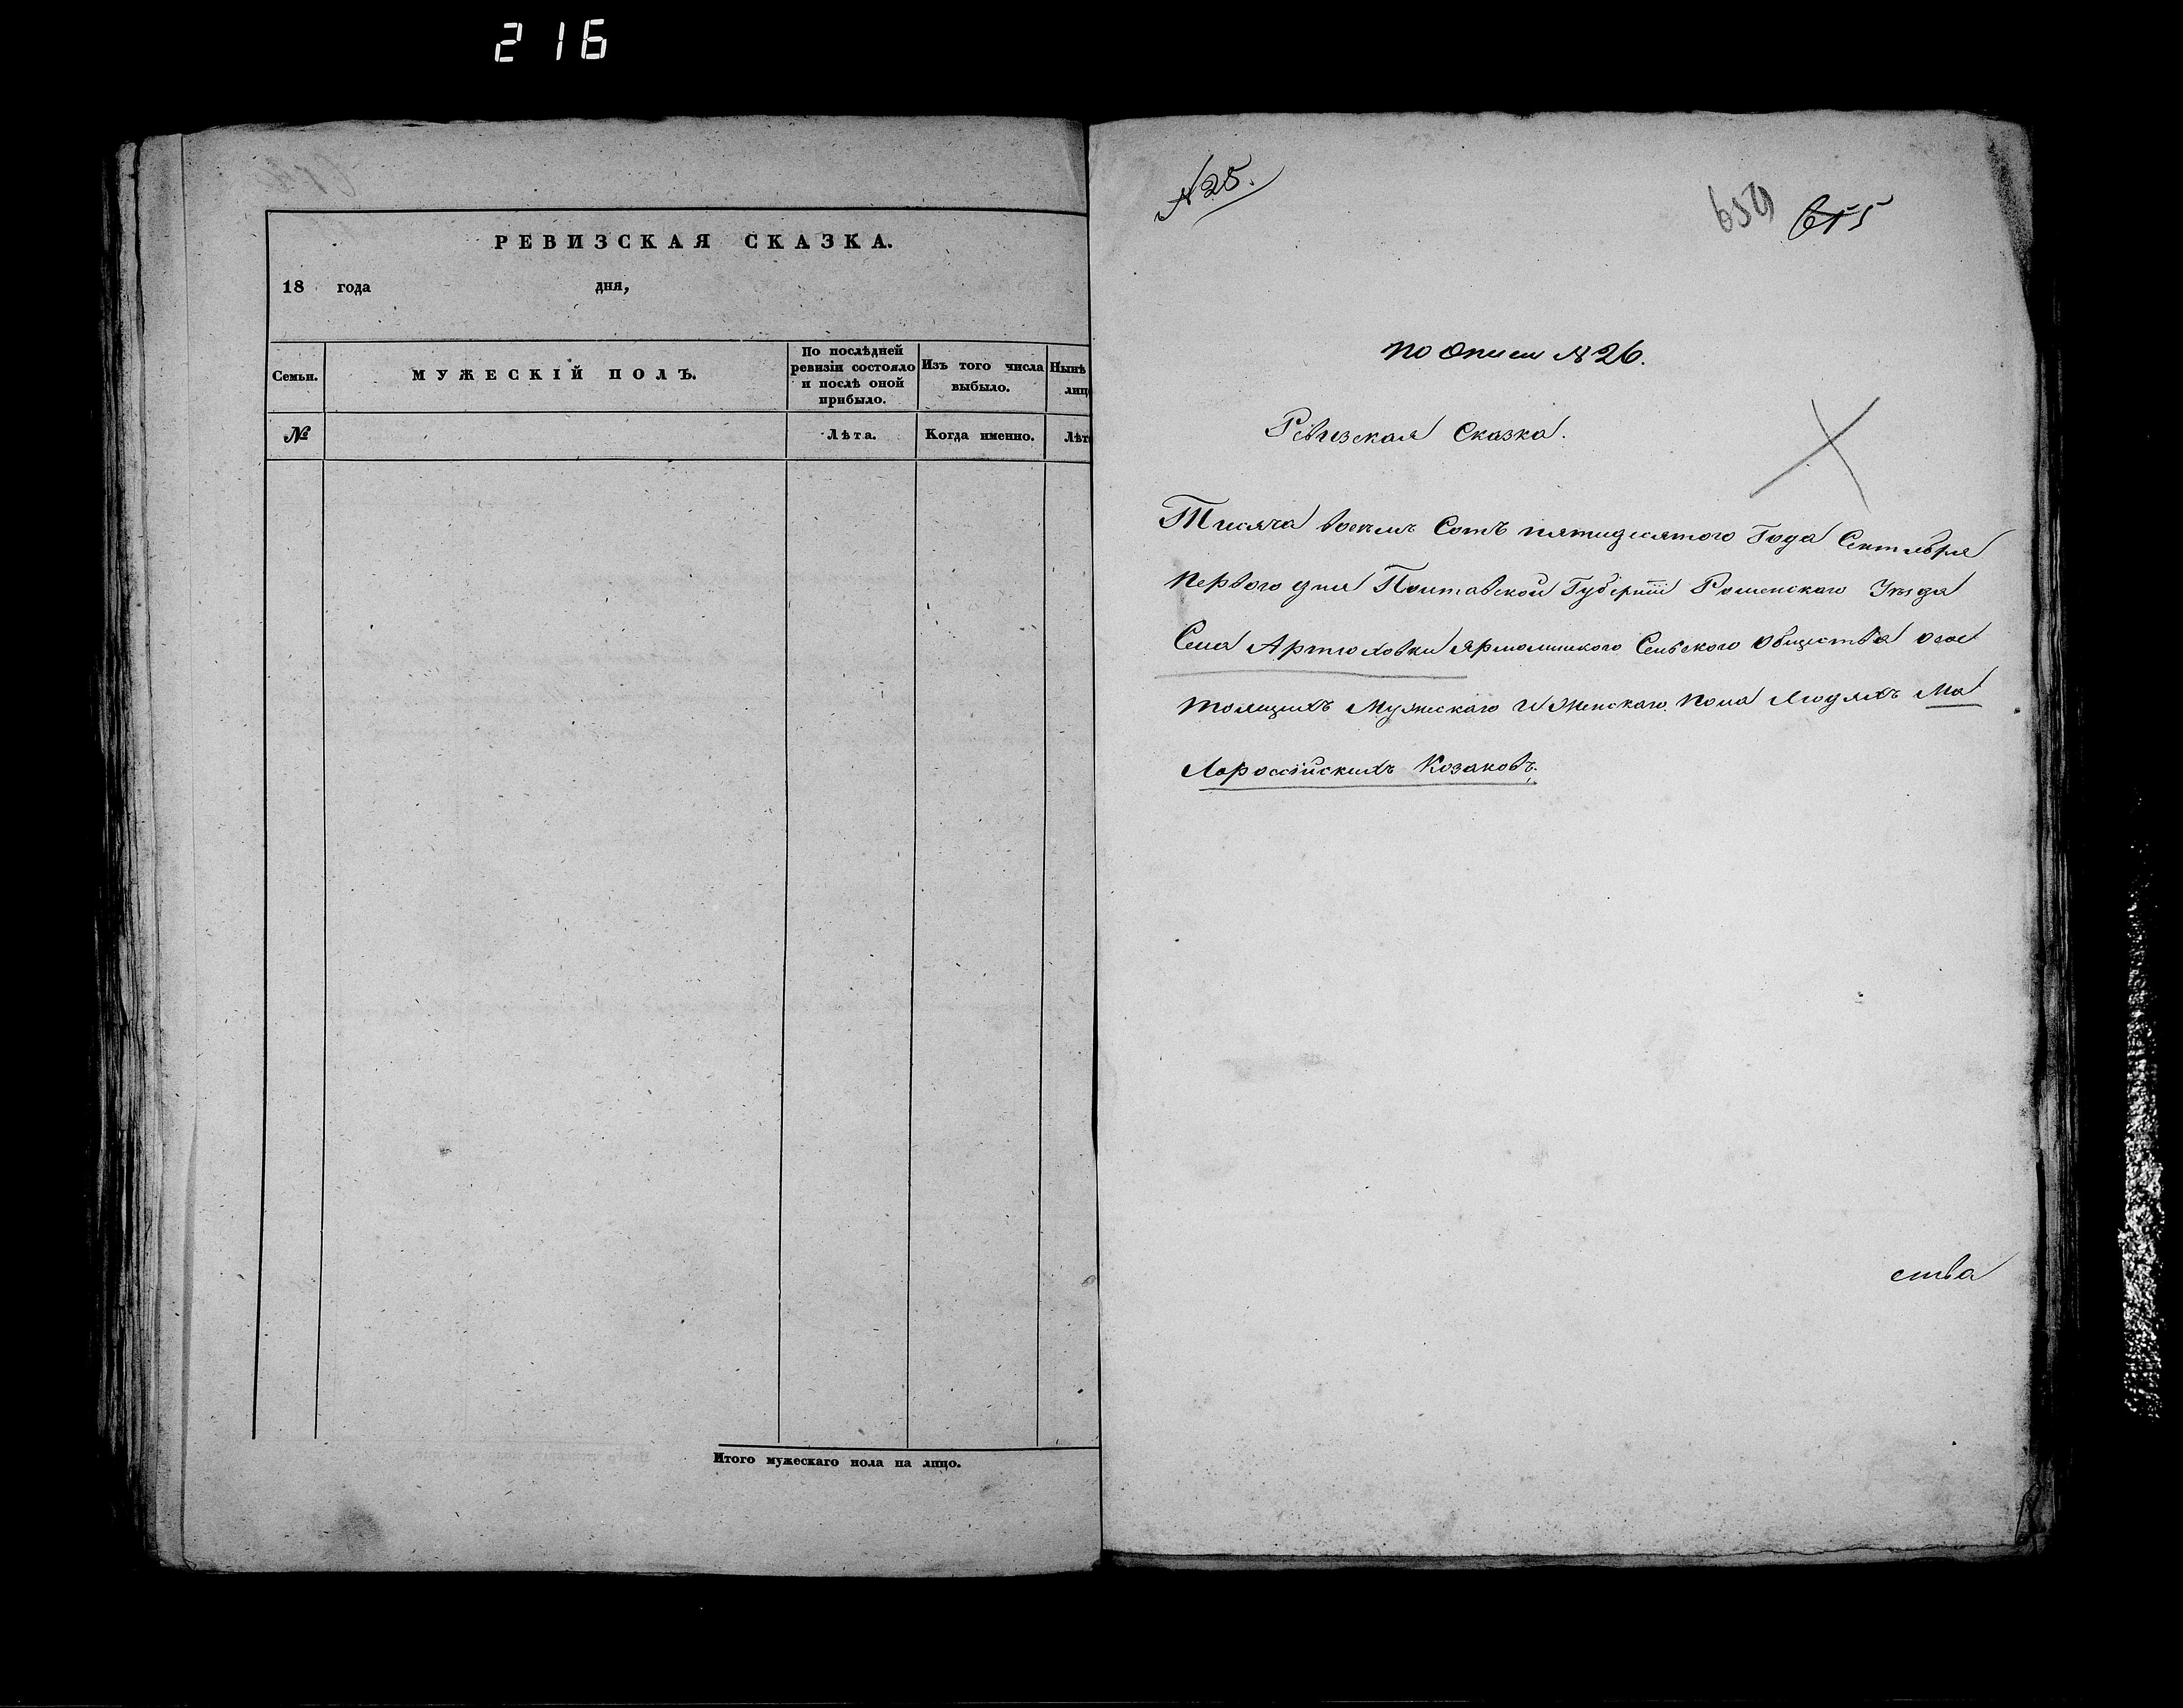 216
РЕВИЗСКАЯ СКАЗКА.
18 года дня,
Семьи.
МУЖЕСКІЙ ПОЛЪ.
По послѣдней
ревизіи состояло
и послѣ оной
прибыло.
Изъ того числа
выбыло.
Нынѣ
лиц
№
Лѣта.
Когда именно.
Лѣт
Итого мужескаго пола на лицо.
№ 25.
659
По Описи № 26.
Ревизская Сказка.
Тисяча восемь Сотъ пятидесятого Года Сентября
Первого дня Полтавской Губерніи Роменскаго Уѣзда
Села Артюховки Ярмолинского Сельского Общества о сос
тоящихъ Мужескаго и Женскаго Пола Людяхъ Ма
лороссійскихъ Козаковъ.
ства